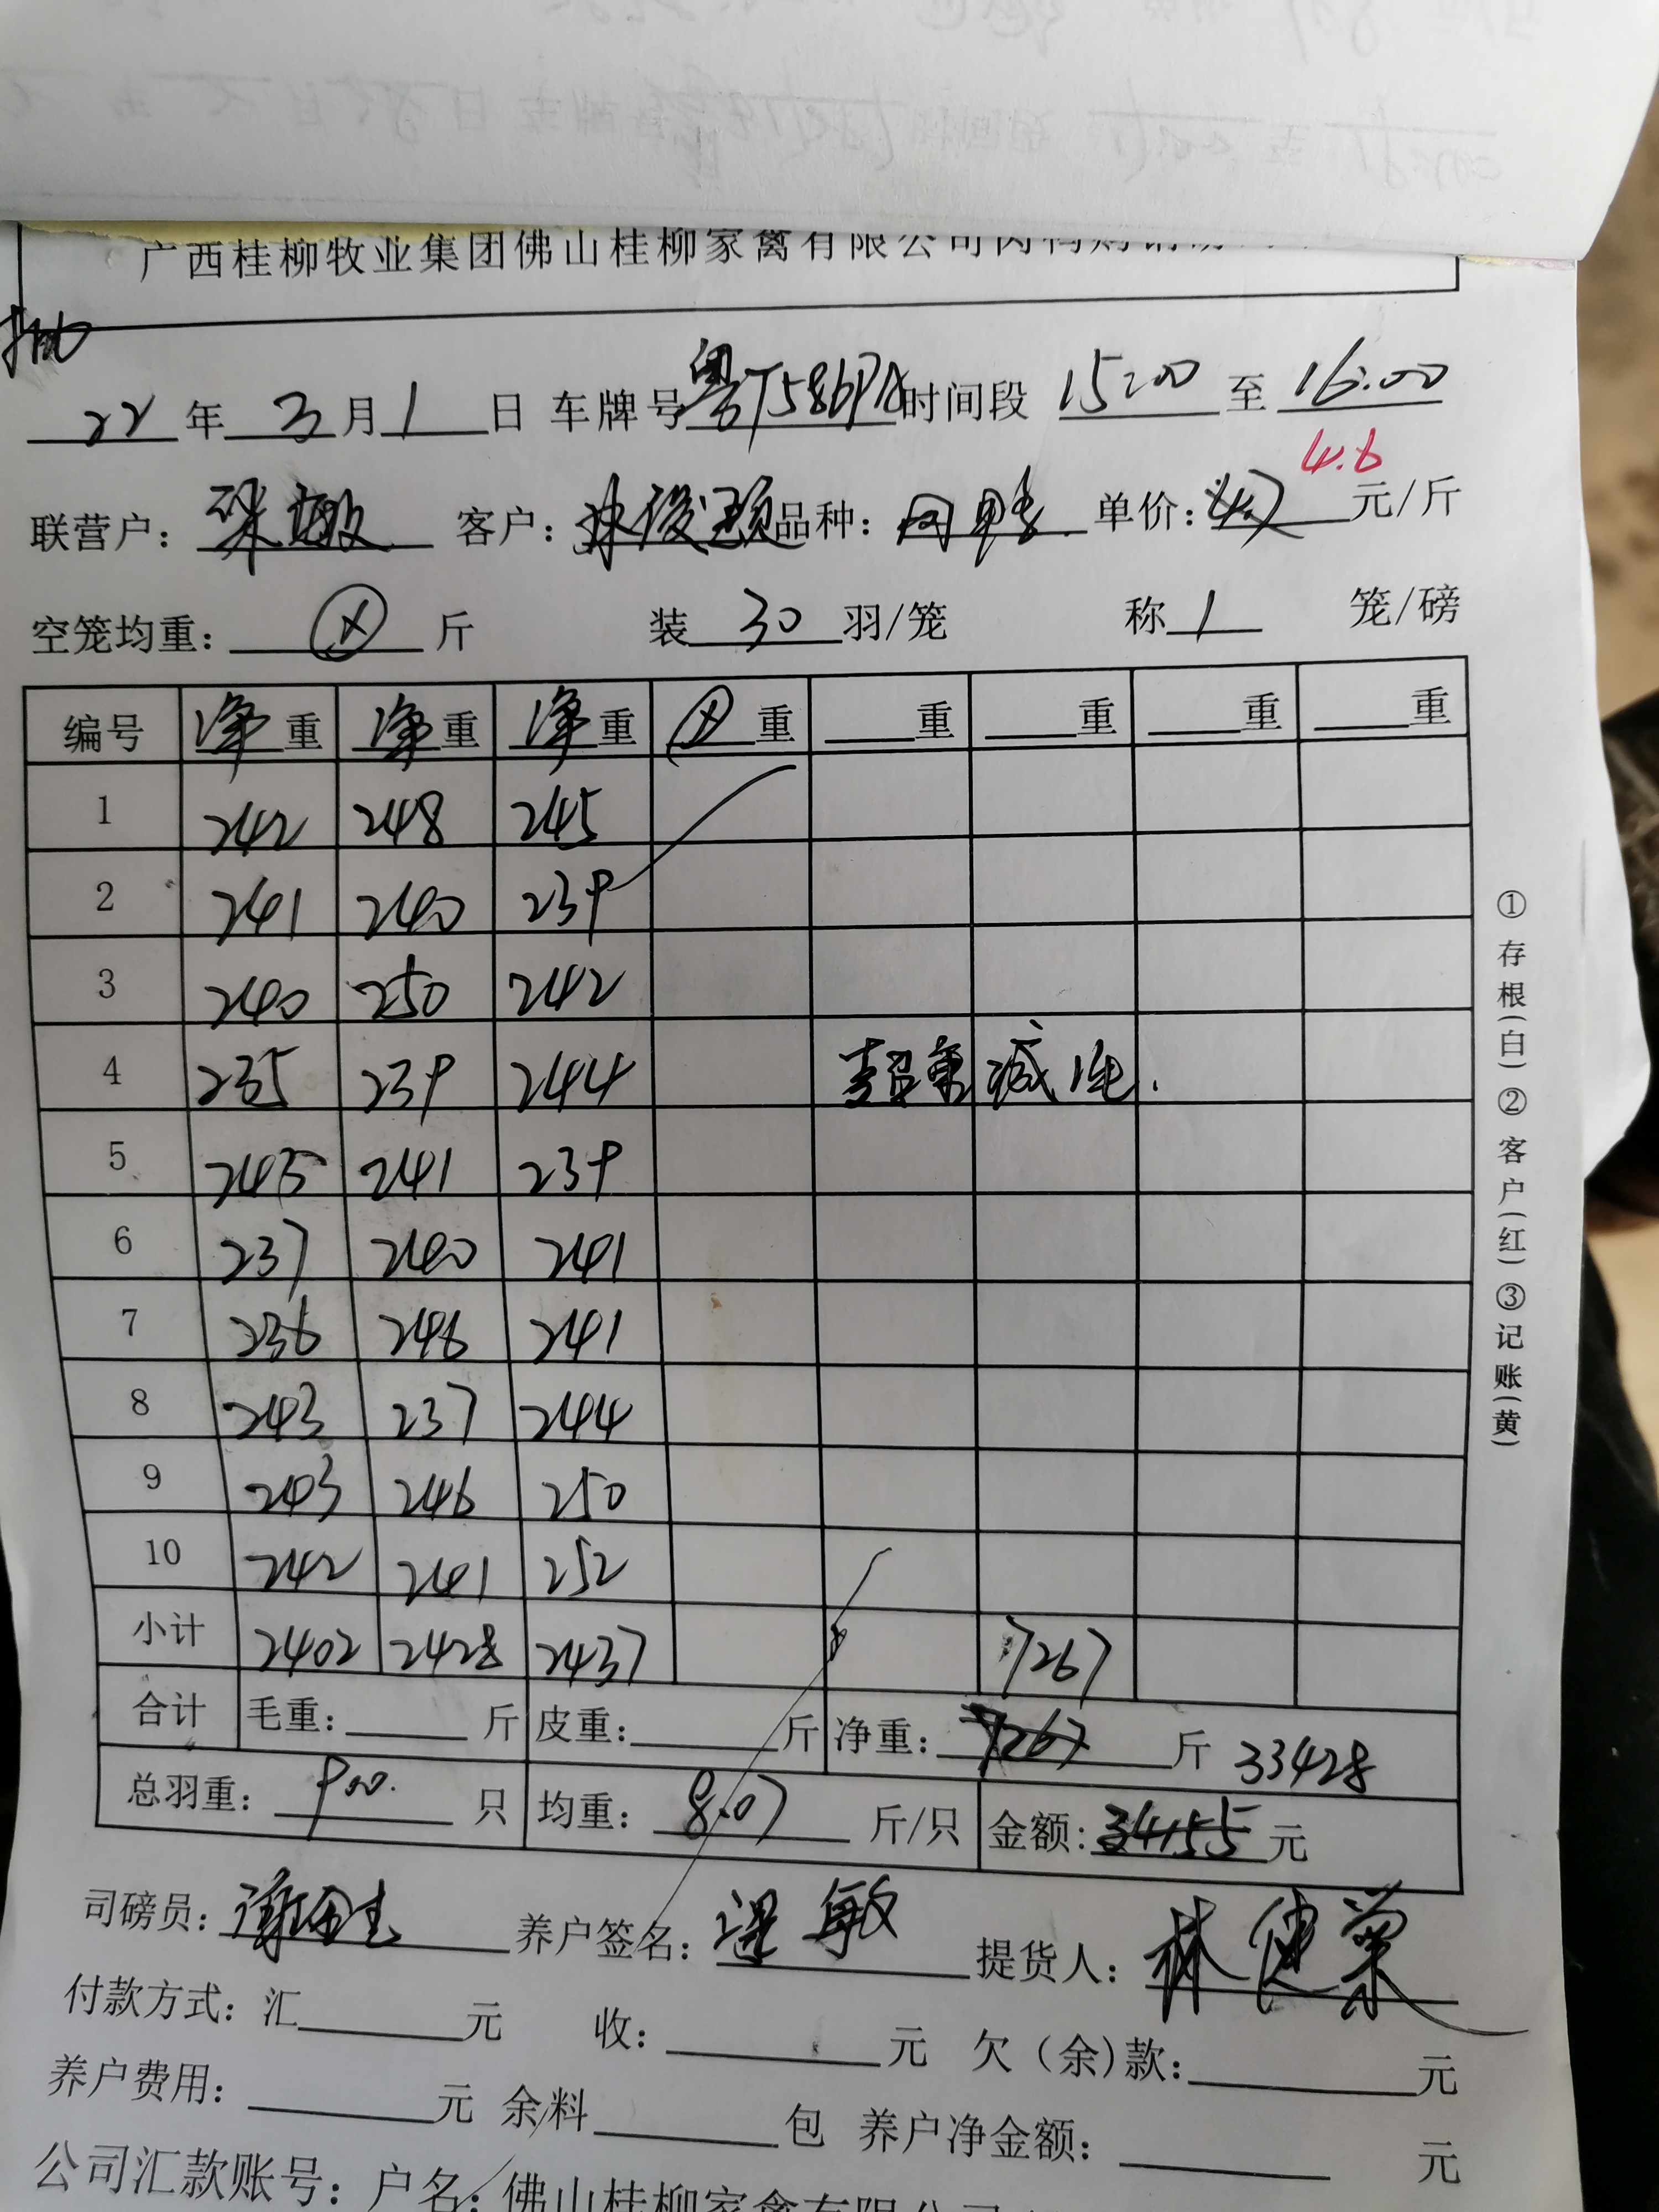 广西桂柳牧业集团佛山桂柳家禽有限公司肉鸭购销
22 年 3 月 1 日 车牌号 粤T586PA 时间段 15:00 至 16:00
4.6
联营户: 梁敏 客户: 林俊颖 品种: 肉鸭 单价: 4.7 元/斤
空笼均重: 斤 装 30 羽/笼 称 1 笼/磅
编号 净重 净重 净重 重 重 重 重 重
1 242 248 245
2 241 240 239
3 240 250 242
4 235 239 244 超重减1毛.
5 243 241 239
6 237 240 241
7 236 246 241
8 243 237 244
9 243 246 250
10 242 241 252
小计 2402 2428 2437 7267
合计 毛重: 斤 皮重: 斤 净重: 7267 斤 33428
总羽重: 900. 只 均重: 8.07 斤/只 金额: 34155 元
司磅员: 养户签名: 梁敏 提货人: 林健荣
付款方式: 汇 元 收: 元 欠(余)款: 元
养户费用: 元 余料 包 养户净金额: 元
公司汇款账号: 户名: 佛山桂柳家禽有限公司
①存根(白)②客户(红)③记账(黄)